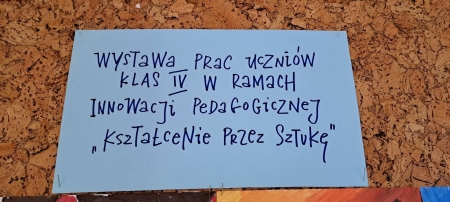 WYSTAWA PRAC UCZNIÓW
KLAS IV W RAMACH
INNOWACJI PEDAGOGICZNEJ
„KSZTAŁCENIE PRZEZ SZTUKĘ"